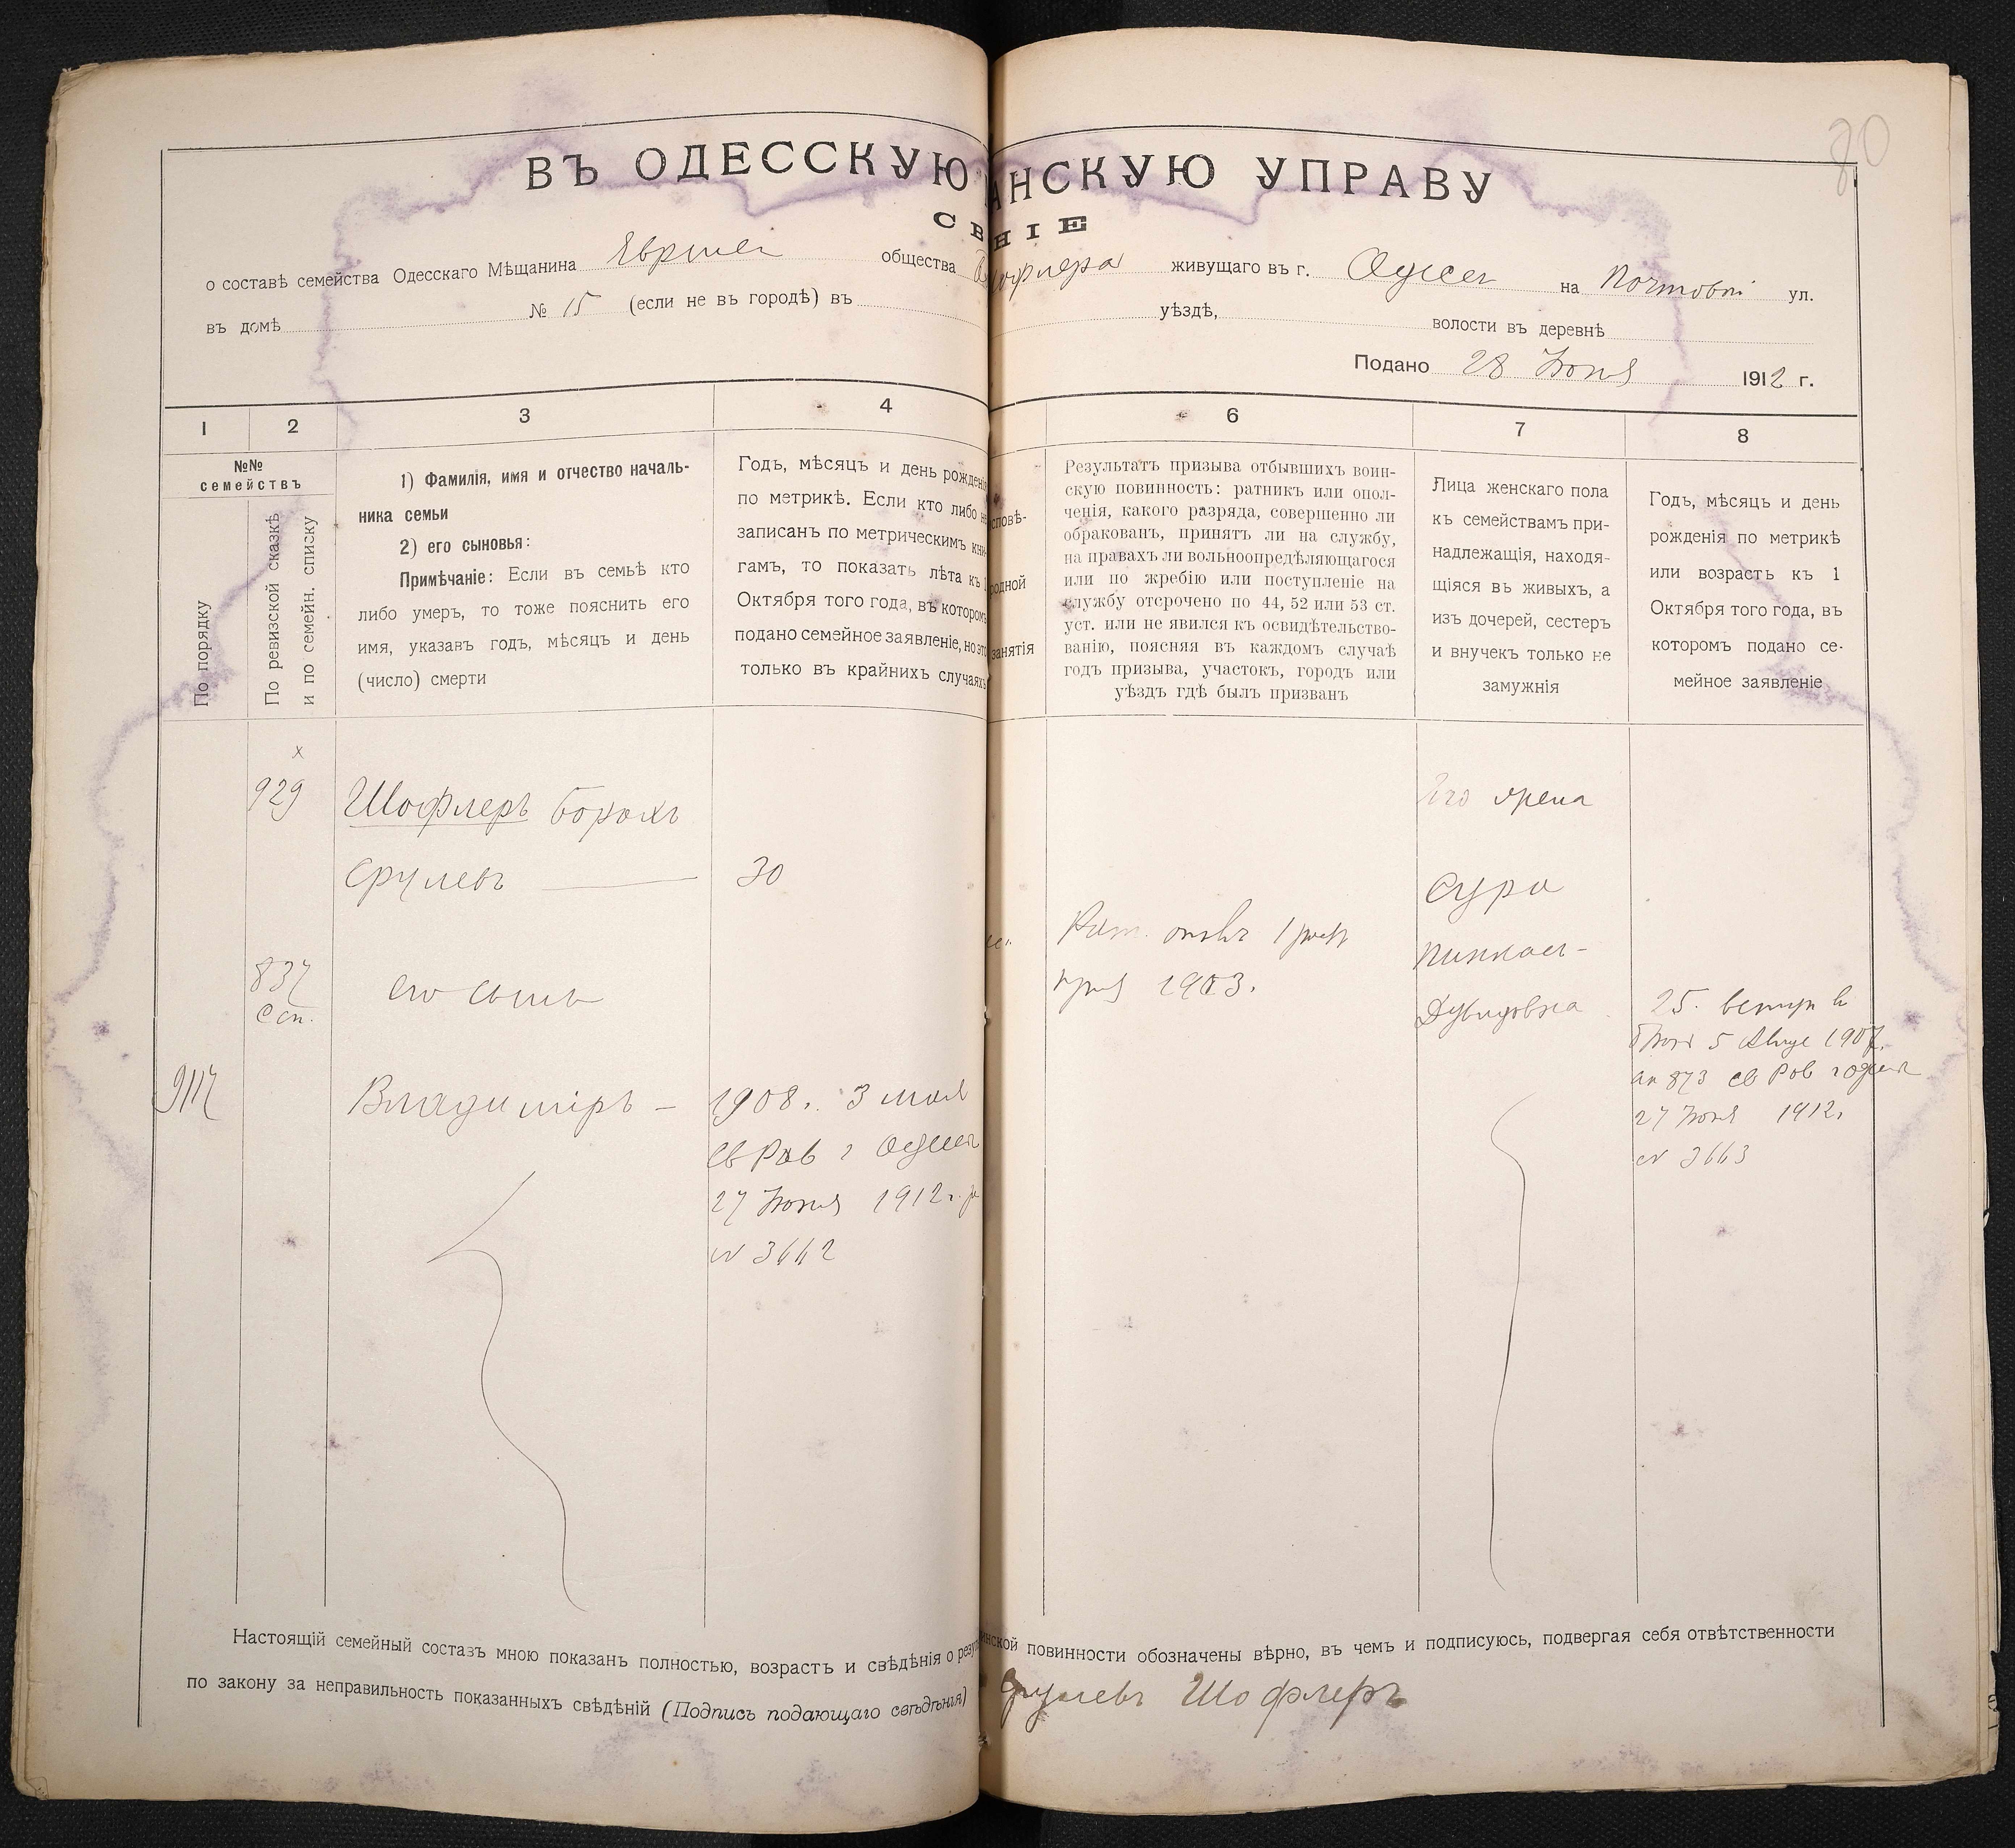 80
ВЪ ОДЕССКУЮ АНСКУЮ УПРАВУ
СВ НІЕ
о составѣ семейства Одесскаго Мѣщанина общества Шофлера живущаго въ г. Одессѣ на Почтовой ул.
въ домѣ № 15 (если не въ городѣ) въ уѣздѣ, волости въ деревнѣ
Подано 28 Іюня 1912 г.
1 2 3 4 6 7 8
№№ семействъ
По порядку
По ревизской сказкѣ
и по семейн. списку
1) Фамилія, имя и отчество началь-
ника семьи
2) его сыновья:
Примѣчаніе: Если въ семьѣ кто
либо умеръ, то тоже пояснить его
имя, указавъ годъ, мѣсяцъ и день
(число) смерти
Годъ, мѣсяцъ и день рожденія
по метрикѣ. Если кто либо не
записанъ по метрическимъ кни-
гамъ, то показать лѣта къ 1
Октября того года, въ которомъ
подано семейное заявленіе, но это
только въ крайнихъ случаяхъ
сповѣ-
родной
занятія
Результатъ призыва отбывшихъ воин-
скую повинность: ратникъ или опол-
ченія, какого разряда, совершенно ли
обракованъ, принятъ ли на службу,
на правахъ ли вольноопредѣляющагося
или по жребію или поступленіе на
службу отсрочено по 44, 52 или 53 ст.
уст. или не явился къ освидѣтельство-
ванію, поясняя въ каждомъ случаѣ
годъ призыва, участокъ, городъ или
уѣздъ гдѣ былъ призванъ
Лица женскаго пола
къ семействамъ при-
надлежащія, находя-
щіяся въ живыхъ, а
изъ дочерей, сестеръ
и внучекъ только не
замужнія
Годъ, мѣсяцъ и день
рожденія по метрикѣ
или возрастъ къ 1
Октября того года, въ
которомъ подано се-
мейное заявленіе
х
929
Шофлеръ Борохъ
Срулевъ — 30
837
Ссп.
его сынъ
9117
Владиміръ — 1908 г. 3 мая
св Рав г Одессы
27 Іюня 1912 г. за
№ 3662
Рат. опол 1 разр
приз 1903.
Его жена
Сура
Пинхас-
Дувидовна
25. вступ въ
бракъ 5 Авгус 1907.
ак 873 св Рав г Одессы
27 Іюня 1912 г.
№ 3663
Настоящій семейный составъ мною показанъ полностью, возрастъ и свѣдѣнія о резу инской повинности обозначены вѣрно, въ чемъ и подписуюсь, подвергая себя отвѣтственности
по закону за неправильность показанныхъ свѣдѣній (Подпись подающаго свѣдѣнія) Срулевъ Шофлеръ